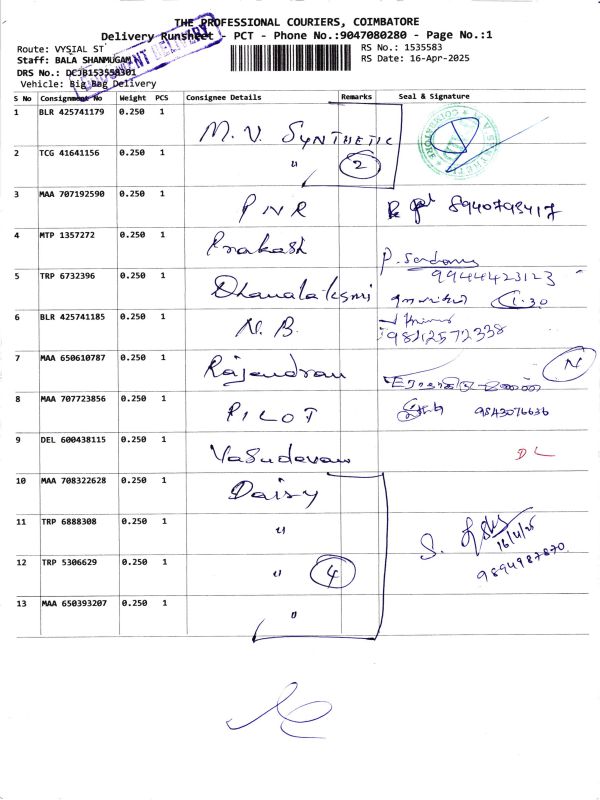 THE PROFESSIONAL COURIERS, COIMBATORE
Delivery Runsheet - PCT - Phone No.:9047080280 - Page No.:1
Route: VYSIAL ST
RS No.: 1535583
Staff: BALA SHANMUGAM
RS Date: 16-Apr-2025
DRS No.: DCJB153558301
Vehicle: Big Bag Delivery
S No Consignment No Weight PCS Consignee Details Remarks Seal & Signature
1 BLR 425741179 0.250 1 M.V. SYNTHETIC
2 TCG 41641156 0.250 1 " 2
3 MAA 707192590 0.250 1 PNR 8940793417
4 MTP 1357272 0.250 1 Prakash
9944423123
5 TRP 6732396 0.250 1 Dhanalakshmi 1.30
6 BLR 425741185 0.250 1 N.B.
7 MAA 650610787 0.250 1 Rajendran N
8 MAA 707723856 0.250 1 PILOT 9843076636
9 DEL 600438115 0.250 1 Vasudevan DL
10 MAA 708322628 0.250 1 Daisy
11 TRP 6888308 0.250 1 " S.
16/4/25
12 TRP 5306629 0.250 1 " 4 9894987870
13 MAA 650393207 0.250 1 "